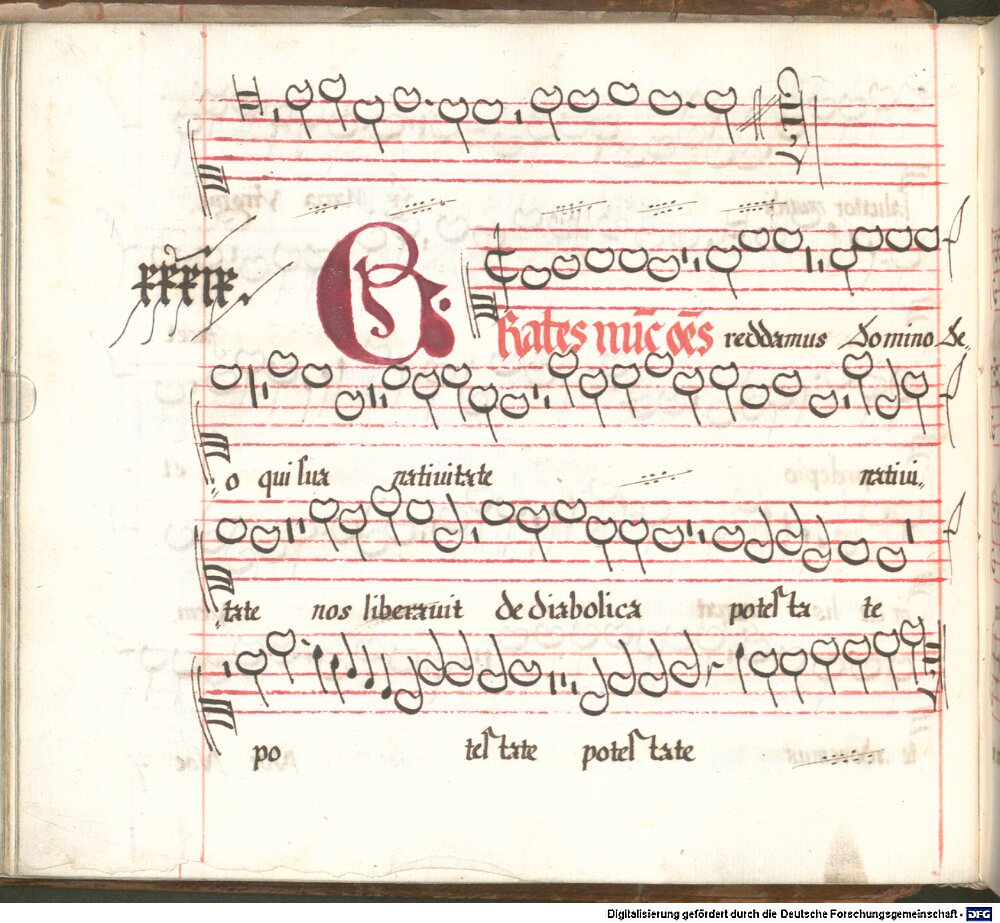 xxxix.
GRates nūc oēs reddamus Domino De„
„o qui sua nativitate nativi„
„tate nos liberavit de diabolica potesta te
po testate potestate
Digitalisierung gefördert durch die Deutsche Forschungsgemeinschaft - DFG